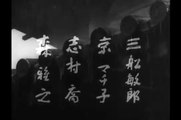 三船敏郎
京マチ子
志村喬
森雅之